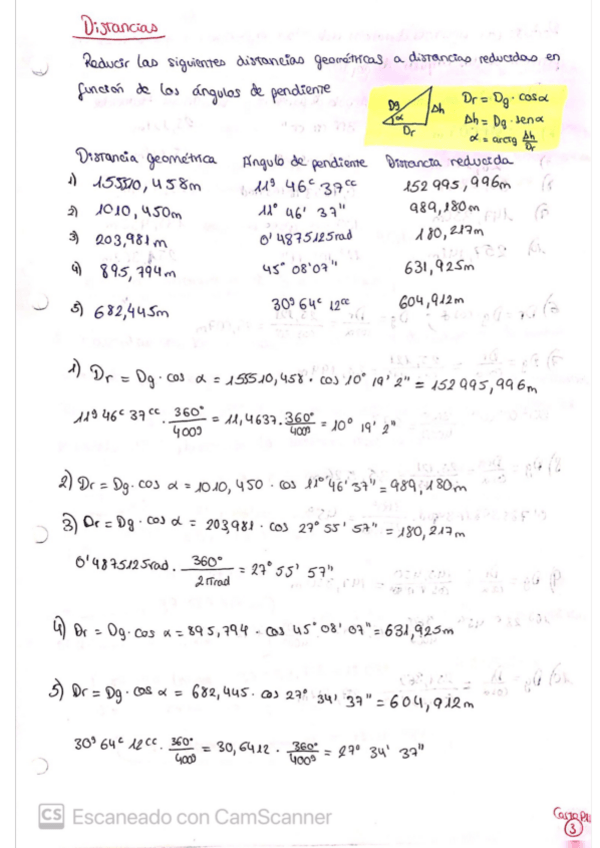 Distancias
Reducir las siguientes distancias geométricas a distancias reducidas en
función de los ángulos de pendiente
Dg Δh α Dr
Dr = Dg · cosα
Δh = Dg · senα
α = arctg Δh/Dr
Distancia geométrica Ángulo de pendiente Distancia reducida
1) 155510,458m 11g 46c 37cc 152995,996m
2) 1010,450m 11° 46' 37" 989,180m
3) 203,981m 0'4875125rad 180,217m
4) 895,794m 45° 08'07" 631,925m
5) 682,445m 30g 64c 12cc 604,912m
1) Dr = Dg · cos α = 155510,458 · cos 10° 19' 2" = 152995,996m
11g 46c 37cc · 360°/400g = 11,4637 · 360°/400g = 10° 19' 2"
2) Dr = Dg · cos α = 1010,450 · cos 11° 46' 37" = 989,180m
3) Dr = Dg · cos α = 203,981 · cos 27° 55' 57" = 180,217m
0'4875125rad · 360°/2πrad = 27° 55' 57"
4) Dr = Dg · cos α = 895,794 · cos 45° 08' 07" = 631,925m
5) Dr = Dg · cos α = 682,445 · cos 27° 34' 37" = 604,912m
30g 64c 12cc · 360°/400g = 30,6412 · 360°/400g = 27° 34' 37"
CS Escaneado con CamScanner
3